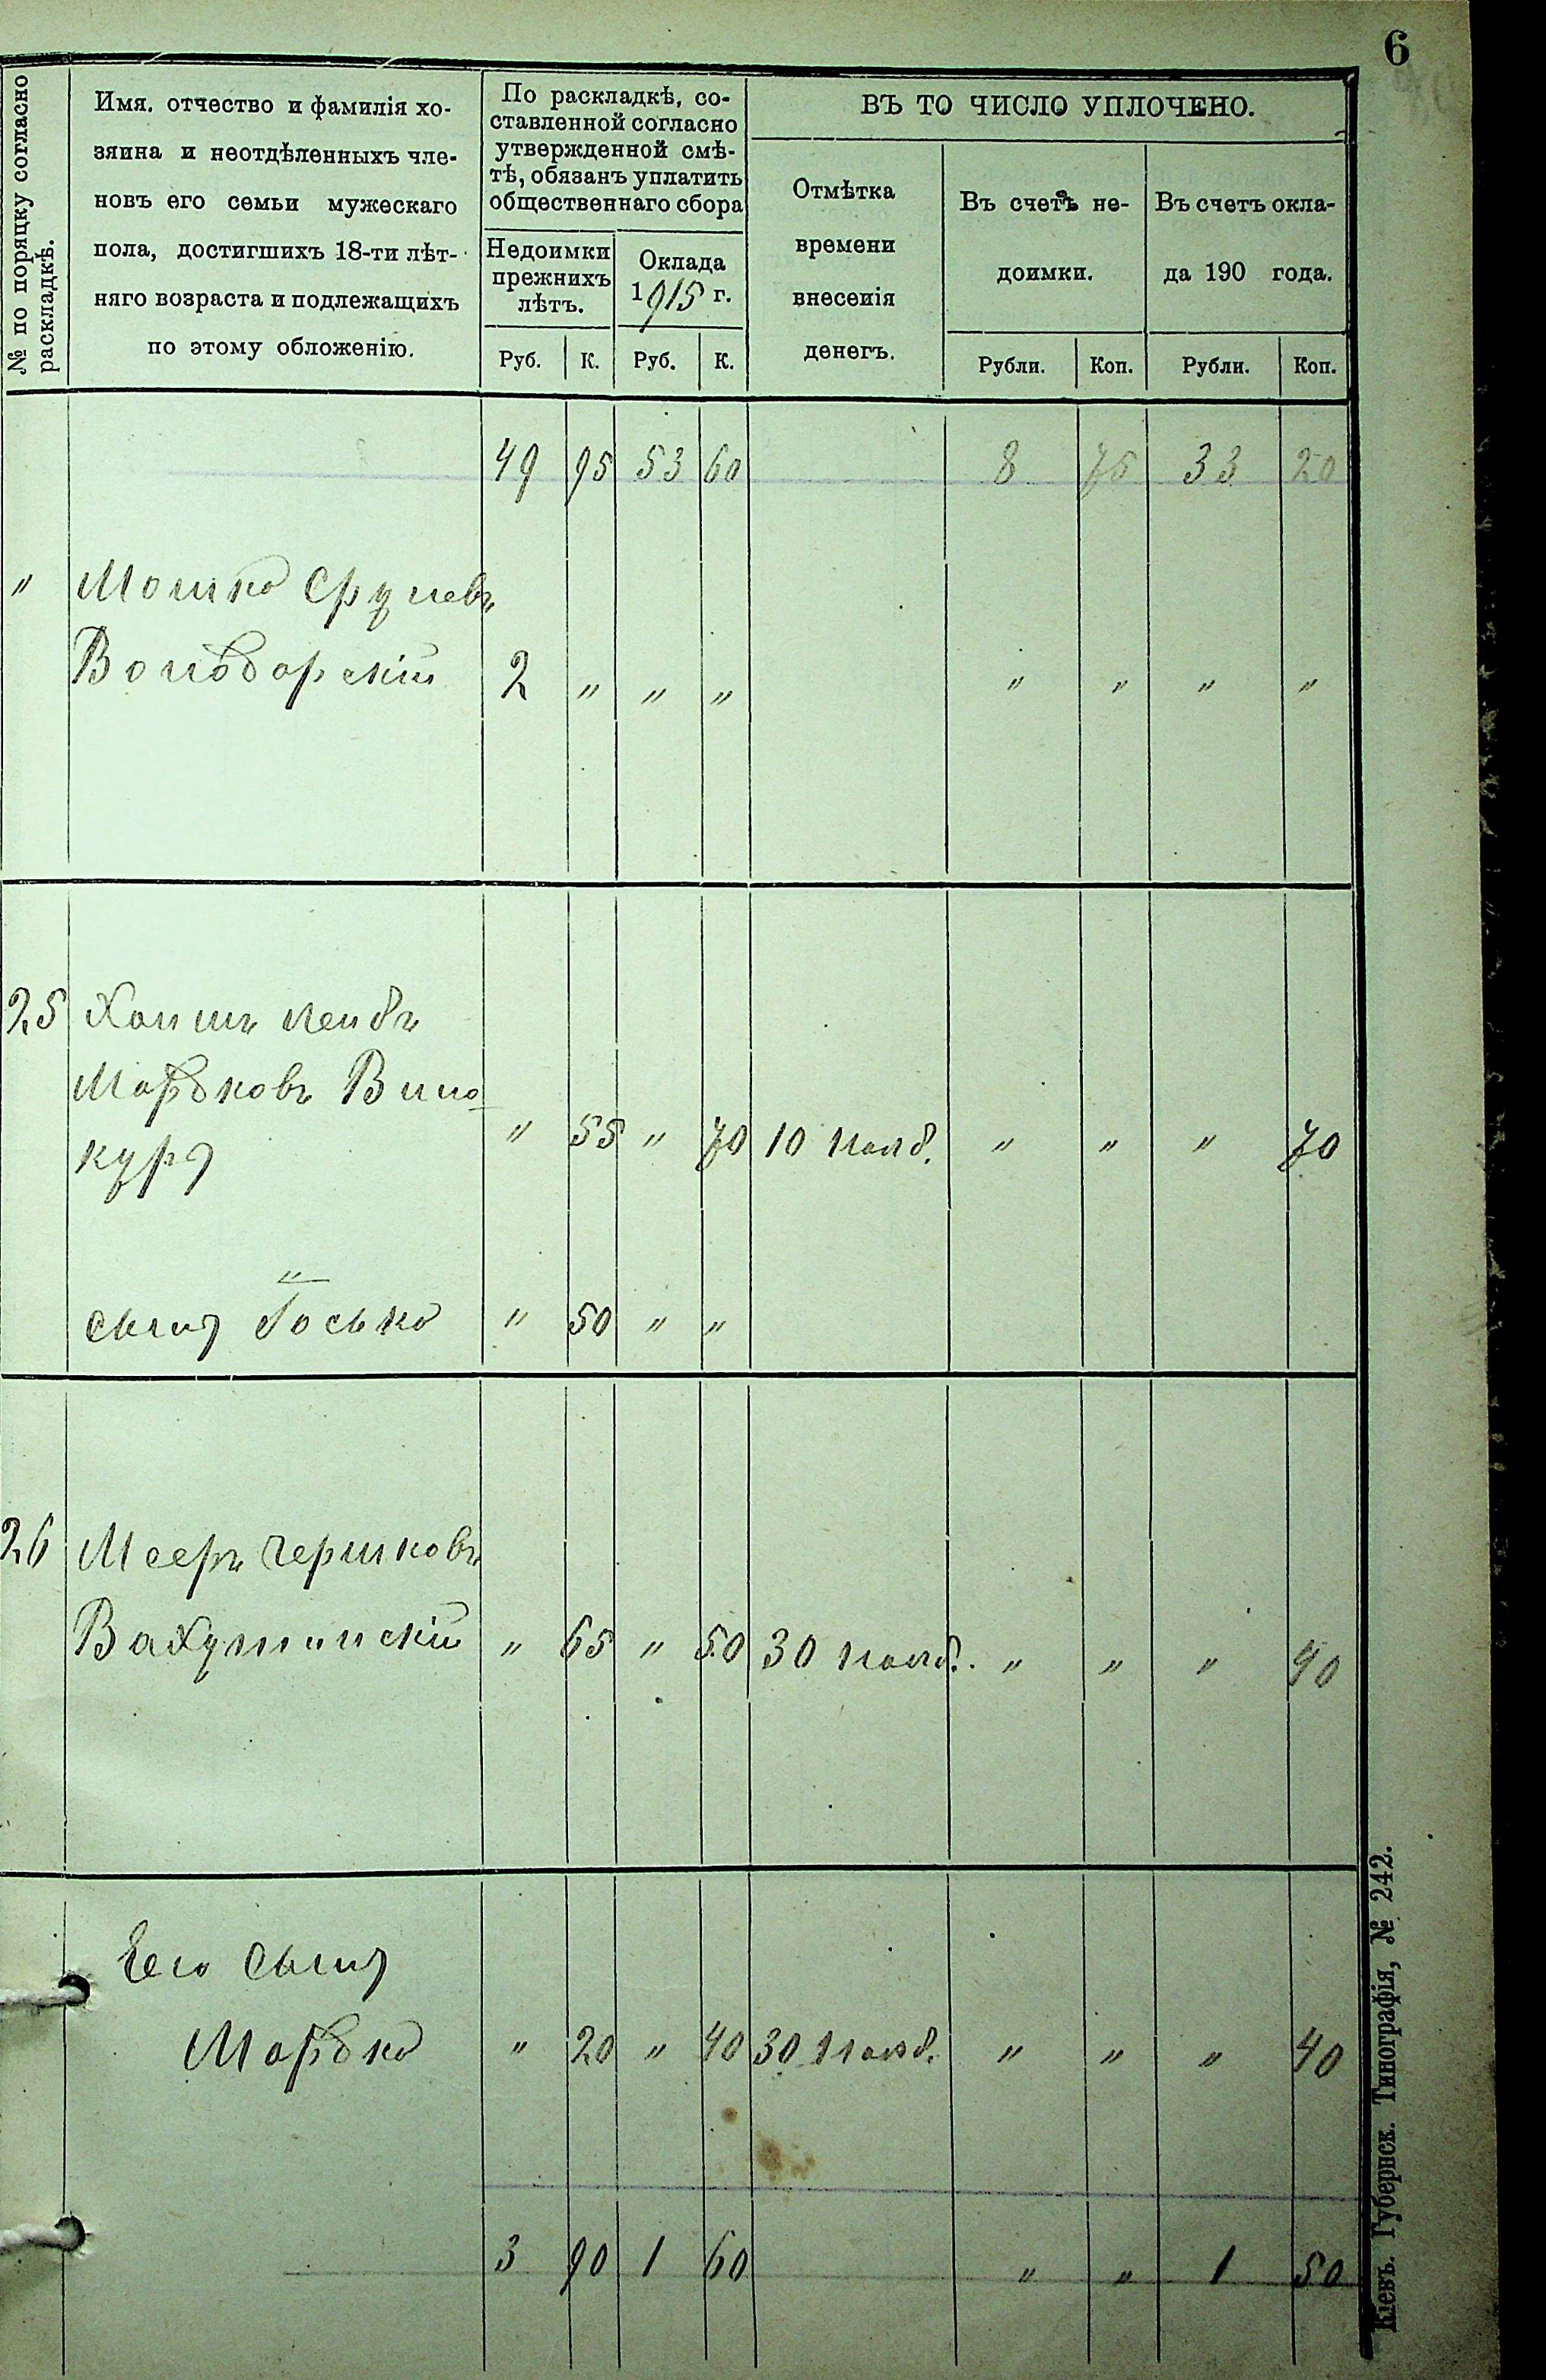 6
№ по поряцку согласно
раскладкѣ.
Имя. отчество и фамилія хо-
зяина и неотдѣленныхъ чле-
новъ его семьи мужескаго
пола, достигшихъ 18-ти лѣт-
няго возраста и подлежащихъ
по этому обложенію.
По раскладкѣ, со-
ставленной согласно
утвержденной смѣ-
тѣ, обязанъ уплатить
общественнаго сбора
Недоимки
прежнихъ
лѣтъ.
Оклада
1915 г.
Руб. К. Руб. К.
ВЪ ТО ЧИСЛО УПЛОЧЕНО.
Отмѣтка
времени
внесенія
денегъ.
Въ счетъ не-
доимки.
Рубли. Коп.
Въ счетъ окла-
да 190 года.
Рубли. Коп.
49 95 53 60 8 75 33 20
" Мошко Срулевъ
Володарскій 2 " " " " " " "
25 Хаимъ Лейбъ
Мордковъ Вино-
куръ " 55 " 70 10 " " " 70
"
Сынъ Іоська " 50 " "
26 Мееръ Гершковъ
" 65 " 50 30 " " " 40
Его Сынъ
Мордко " 20 " 40 30 " " " 40
3 90 1 60 " " 1 50
Кіевъ. Губернск. Типографія, № 242.